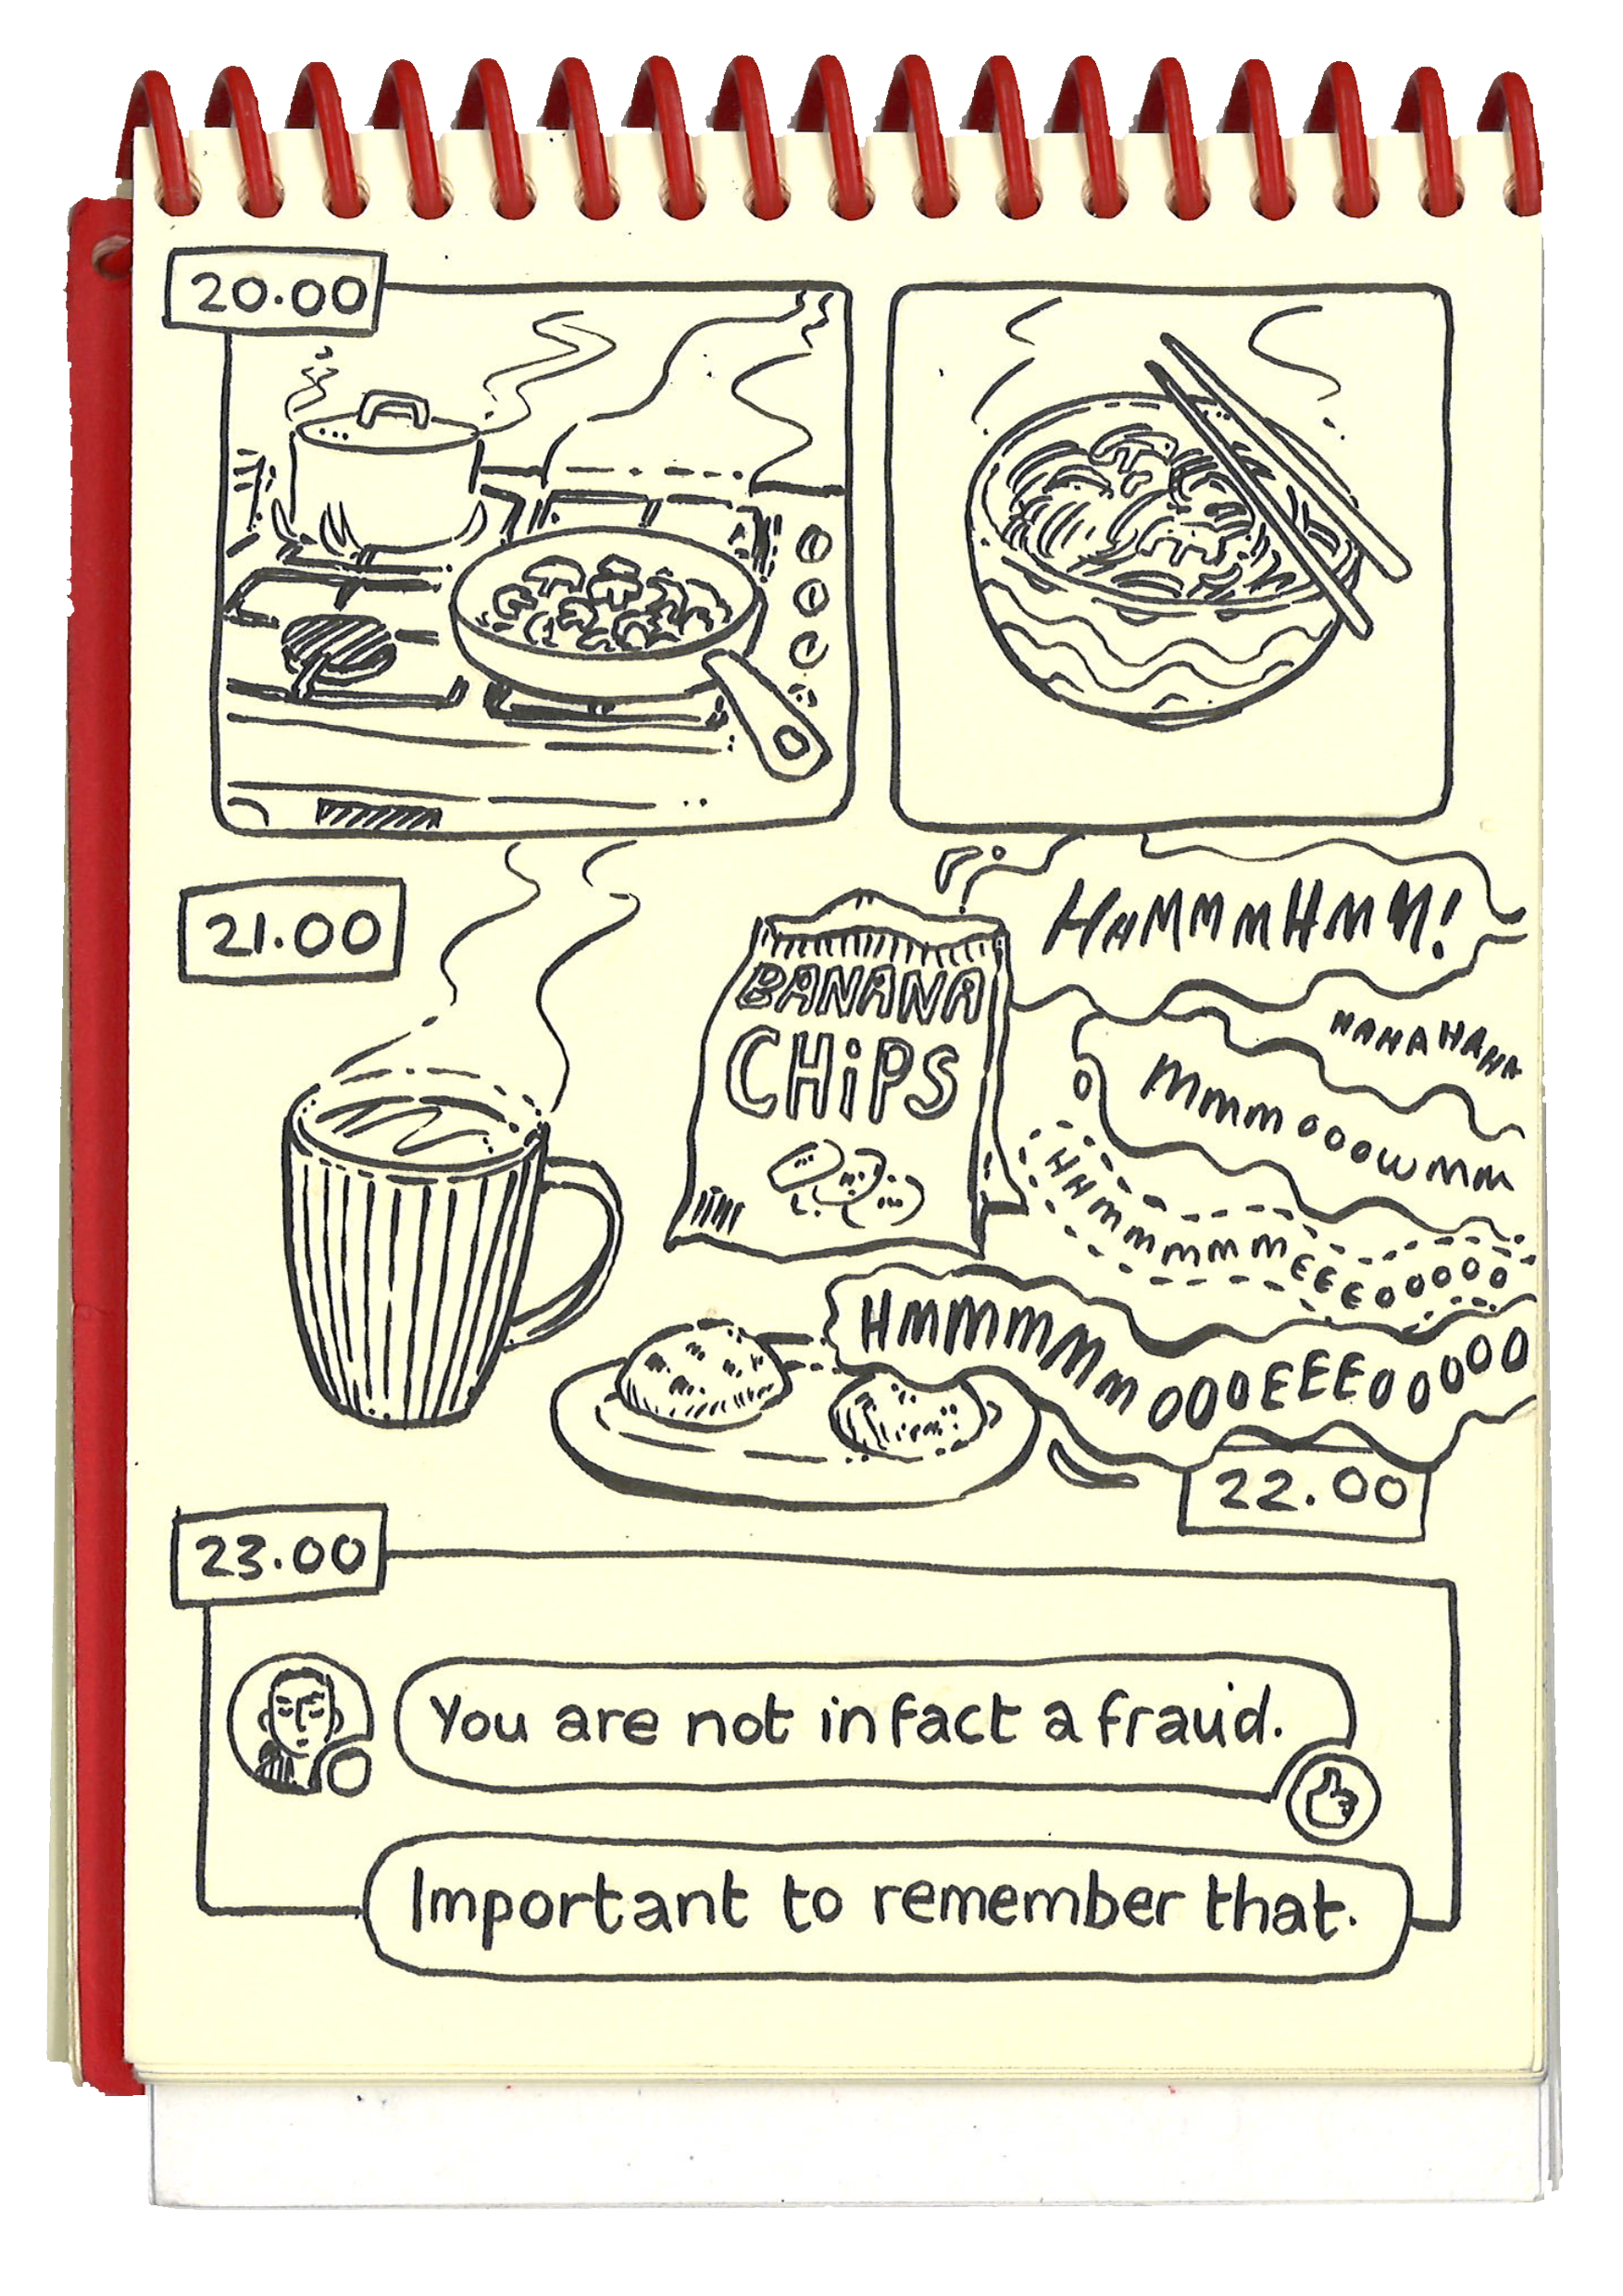 20.00
21.00
BANANA
CHiPS
HHMMMHMM!
HAHAHAHA
MmmmooowMM
HHmmmmmEEEooooo
HMMMMMmOOOEEEOOOOO
22.00
23.00
You are not in fact a fraud.
Important to remember that.